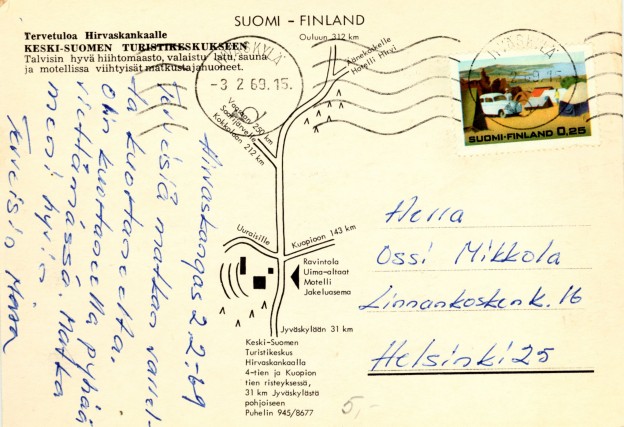 SUOMI - FINLAND
Tervetuloa Hirvaskankaalle
KESKI-SUOMEN TURISTIKESKUKSEEN
Talvisin hyvä hiihtomaasto, valaistu latu, sauna
ja motellissa viihtyisät matkustajahuoneet.
JYVÄSKYLÄ
-3 2 69.15.
JYVÄSKYLÄ
SUOMI-FINLAND 0,25
Ouluun 312 km
Äänekoskelle
Hotelli Hirvi
Vaasaan 250 km
Saarijärvelle
Kokkolaan 212 km
Uuraisille
Kuopioon 143 km
Ravintola
Uima-altaat
Motelli
Jakeluasema
Jyväskylään 31 km
Keski-Suomen
Turistikeskus
Hirvaskankaalla
4-tien ja Kuopion
tien risteyksessä,
31 km Jyväskylästä
pohjoiseen
Puhelin 945/8677
Hirvaskangas 2.2-69
Terveisiä matkan varrel-
ta kuortaneelta.
Olin kuortaneella pyhää
viettämässä. Matka
meni hyvin.
Terveisin
Herra
Ossi Mikkola
Linnankoskenk. 16
Helsinki 25
5,-